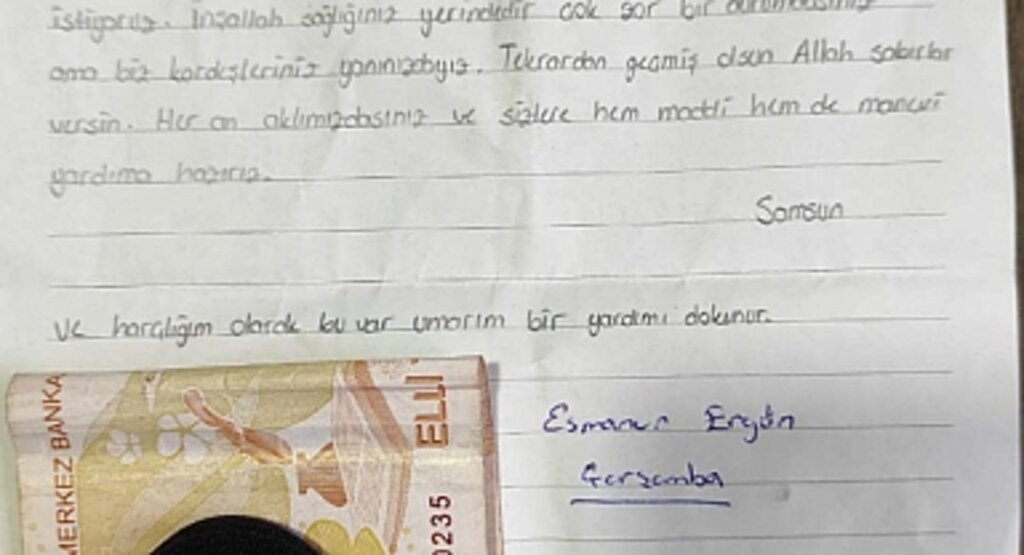 istiyoruz. İnşallah sağlığınız yerindedir çok zor bir durumdasınız
ama biz kardeşleriniz yanınızdayız. Tekrardan geçmiş olsun Allah sabırlar
versin. Her an aklımızdasınız ve sizlere hem maddi hem de manevi
yardıma hazırız.
Samsun
ve harçlığım olarak bu var umarım bir yardımı dokunur.
MERKEZ BANKA
ELLİ
0235
Esmanur Ergün
Çarşamba